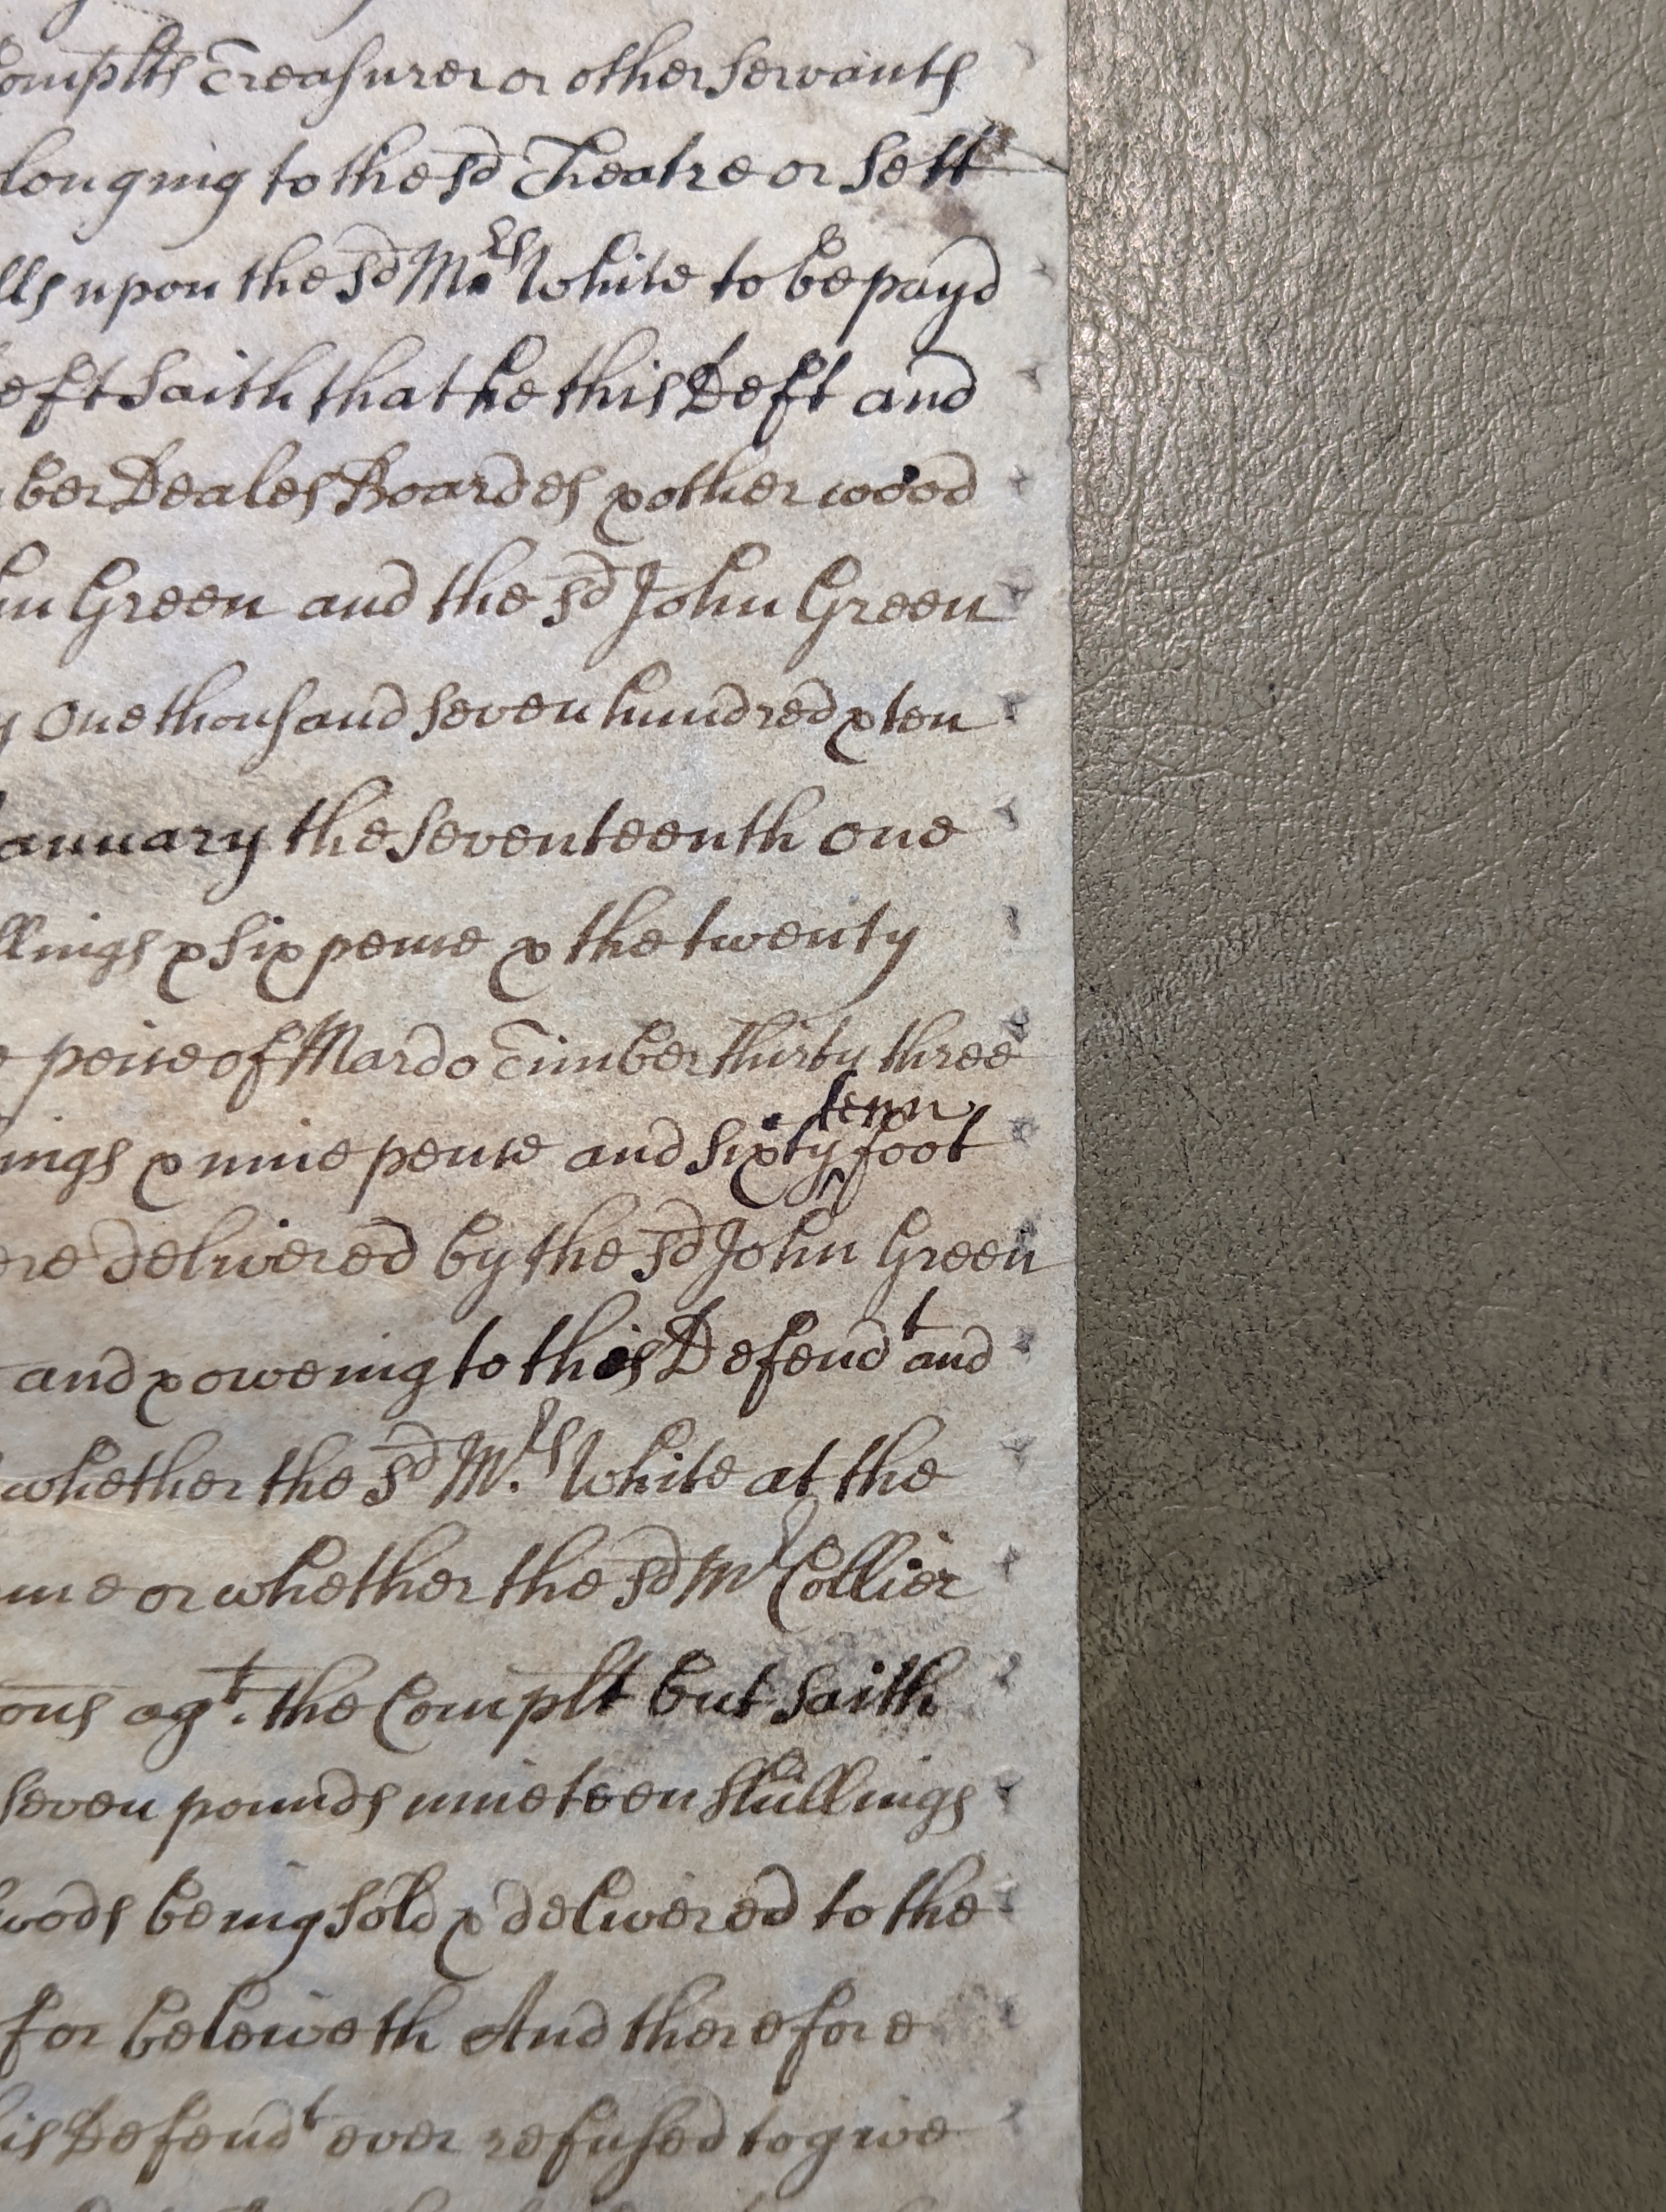 Complts Treasurer or other servants
longing to the sd Theatre or sett
lls upon the sd Mrs White to be payd
eft saith that he this Deft and
ber Deales Boardes & other wood
hn Green and the sd John Green
y One thousand seven hundred & ten
January the seventeenth one
llings & six pence & the twenty
e peice of Mardo Timber thirty three
tenn
ings & nine pence and sixty foot
ere delivered by the sd John Green
and & oweing to this Defendt and
whether the sd Mrs White at the
ime or whether the sd Mr Collier
ons agt. the Complt but saith
seven pounds nineteen shillings
oods being sold & delivered to the
for beleiveth And therefore
is Defendt ever refused to give